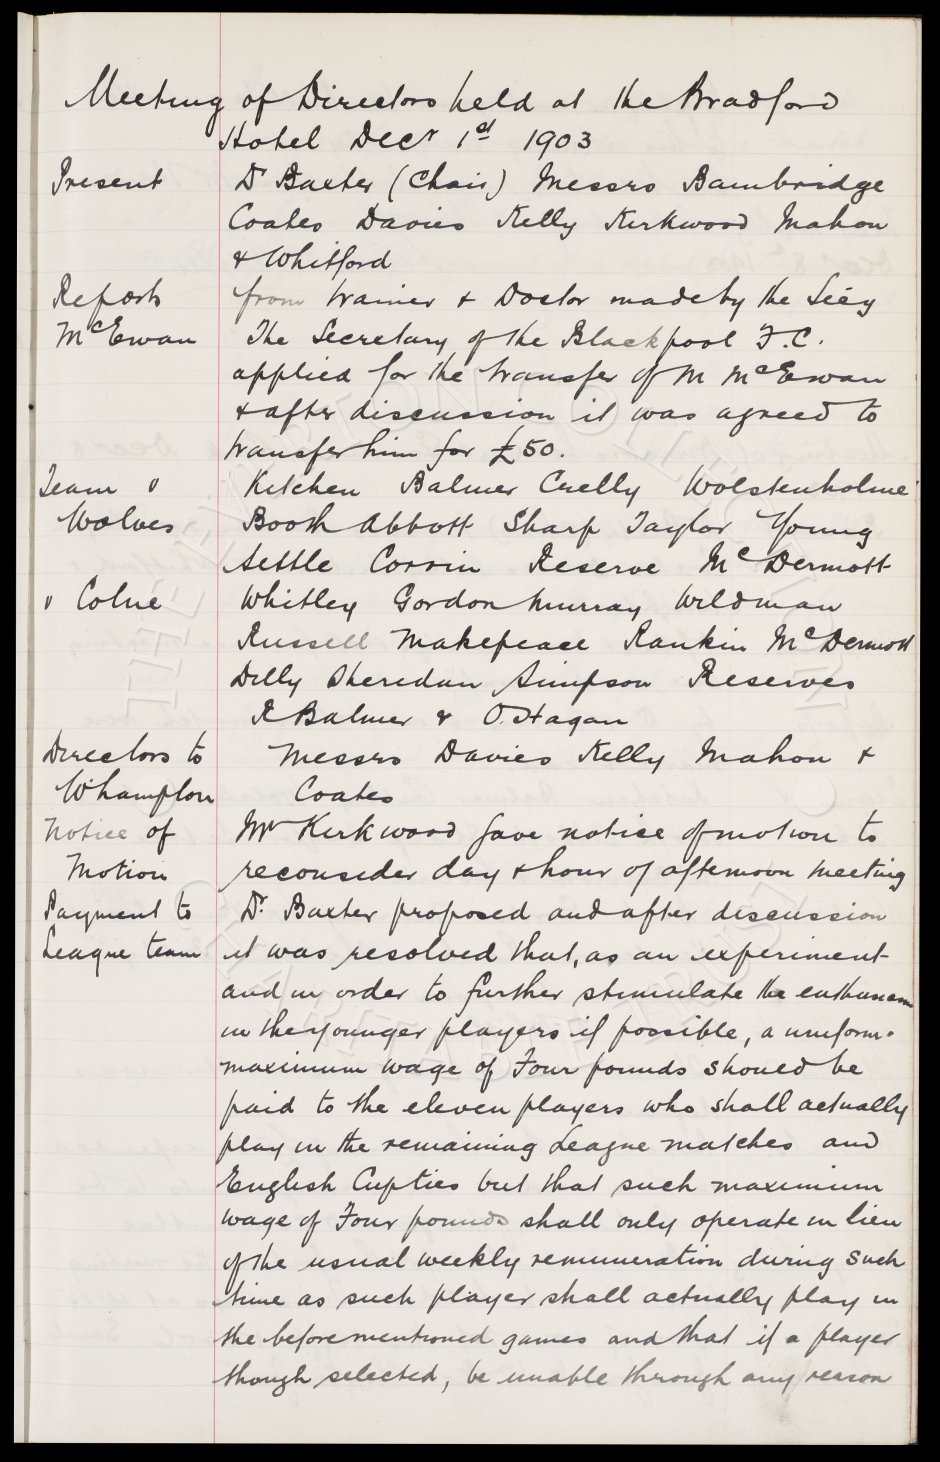 Meeting of Directors held at the Bradford
Hotel Decr 1st 1903
Present Dr Baxter (Chair) Messrs Bambridge
Coates Davies Kelly Kirkwood Mahon
& Whitford
Reports from trainer & Doctor made by the Secy
McEwan The Secretary of the Blackpool F.C.
applied for the transfer of M McEwan
& after discussion it was agreed to
transfer him for £50.
Team v Kitchen Balmer Crelly Wolstenholme
Wolves Booth Abbott Sharp Taylor Young
Settle Corrin Reserve McDermott
v Colne Whitley Gordon Murray Wildman
Russell Makepeace Rankin McDermott
Dilly Sheridan Simpson Reserves
R Balmer & O.Hagan
Directors to Messrs Davies Kelly Mahon &
W'hampton Coates
Notice of Mr Kirkwood gave notice of motion to
Motion reconsider day & hour of afternoon meeting
Payment to Dr. Baxter proposed and after discussion
League team it was resolved that, as an experiment
and in order to further stimulate the enthusiasm
in the younger players if possible, a uniform
maximum wage of Four pounds should be
paid to the eleven players who shall actually
play in the remaining League matches and
English Cupties but that such maximum
wage of Four pounds shall only operate in lieu
of the usual weekly remuneration during such
time as such player shall actually play in
the beforementioned games and that if a player
though selected, be unable through any reason